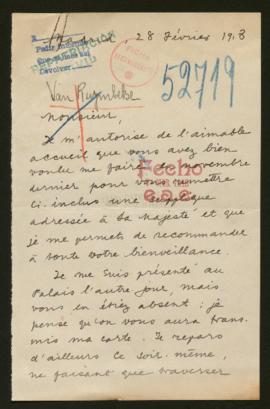 Madrid 28 Février 1918
Pedir informe
Devolver
52719
Van Ruymbeke
Monsieur,
Je m'autorise de l'aimable
accueil que vous avez bien
voulu me faire en novembre
dernier pour vous remettre
ci-inclus une supplique
adressée à Sa Majesté et que
je me permets de recommander
à toute votre bienveillance.
Fecho
Je me suis présenté au
Palais l'autre jour, mais
vous en étiez absent : je
pense qu'on vous aura trans-
mis ma carte. Je repars
d'ailleurs ce soir même,
ne faisant que traverser